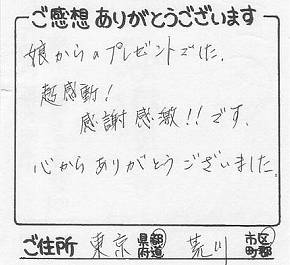 ご感想ありがとうございます
娘からのプレゼントでした.
超感動！
感謝感激!!です.
心からありがとうございました.
ご住所 東京 都道府県 荒川 市区町郡